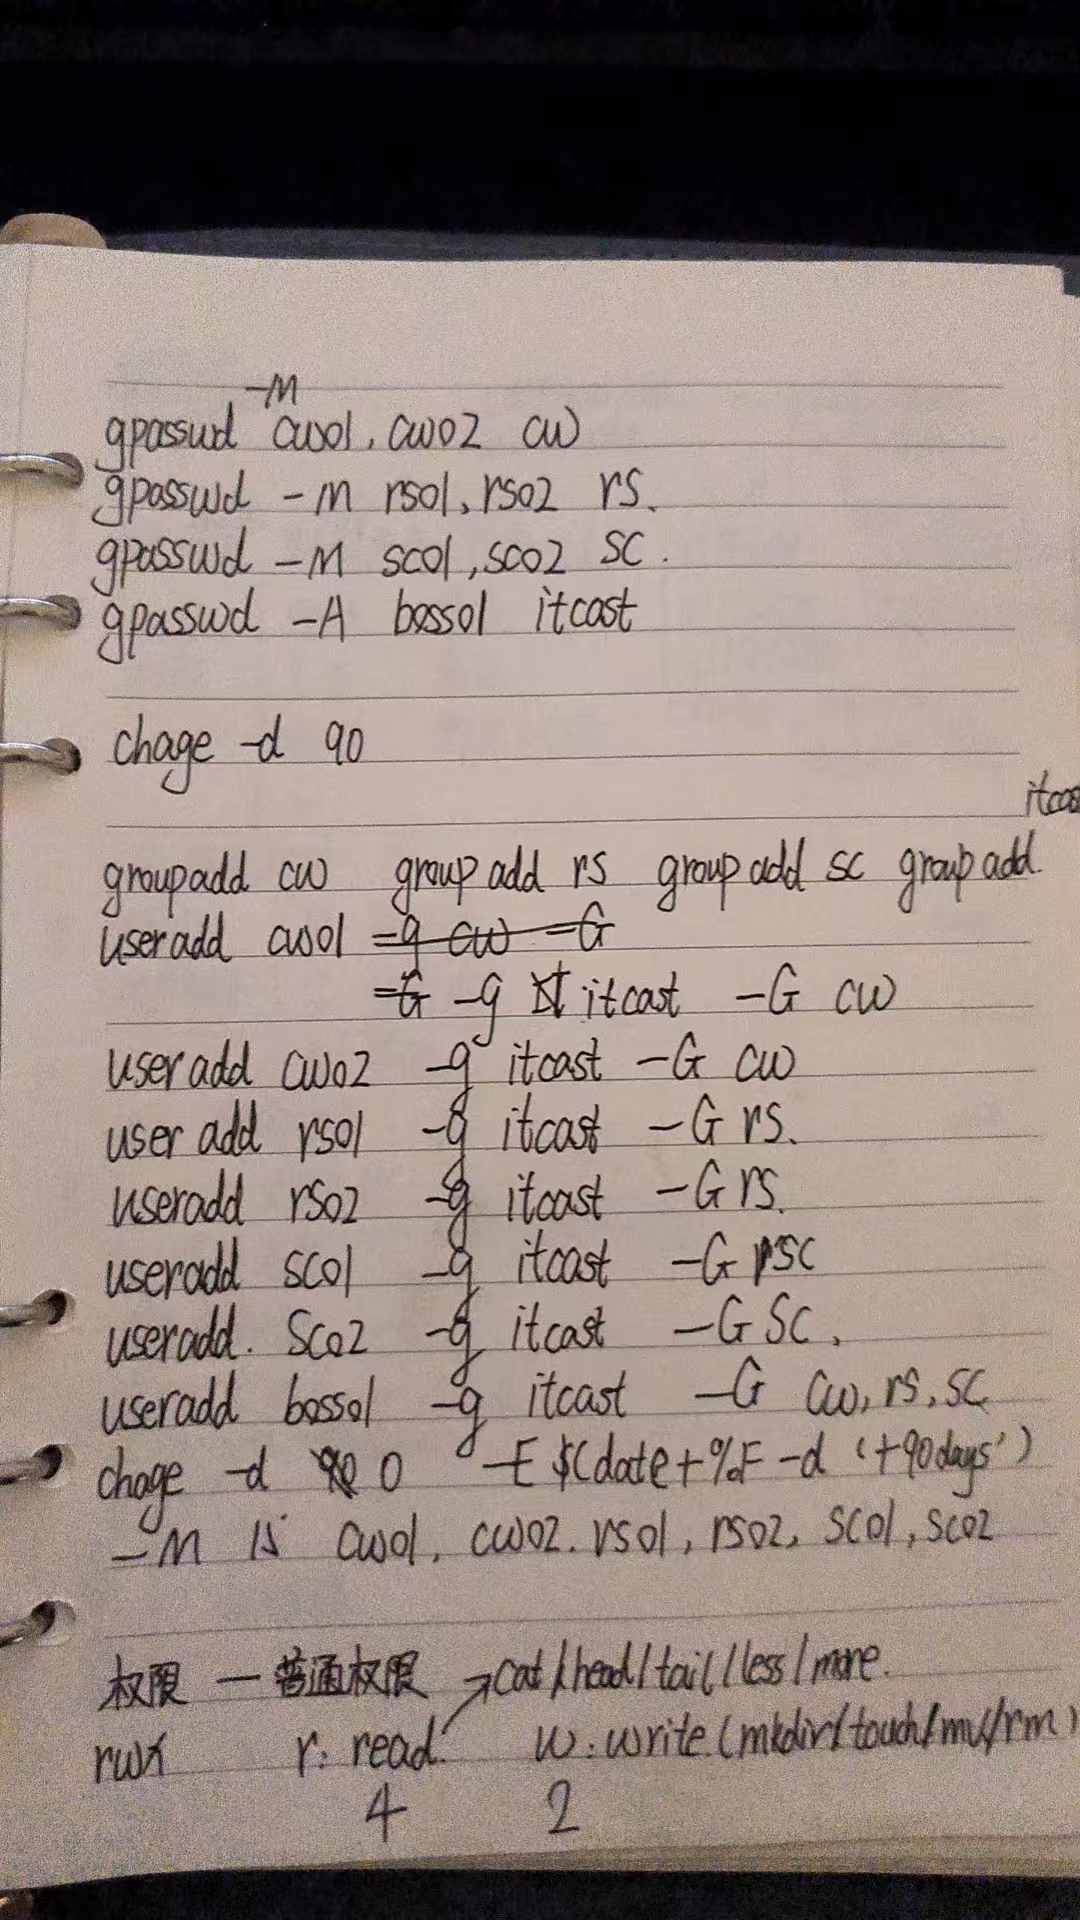 -M
gpasswd cw01, cw02 cw
gpasswd -M rs01, rs02 rs.
gpasswd -M sc01, sc02 sc.
gpasswd -A boss01 itcast
chage -d 90
itcas
groupadd cw group add rs group add sc group add
useradd cw01 -g cw -G
-G -g itcast -G cw
useradd cw02 -g itcast -G cw
user add rs01 -g itcast -G rs.
useradd rs02 -g itcast -G rs.
useradd sc01 -g itcast -G sc
useradd. sc02 -g itcast -G sc.
useradd boss01 -g itcast -G cw, rs, sc
chage -d 0 -E $(date +%F -d '+90days')
-M 15 cw01, cw02. rs01, rs02, sc01, sc02
权限 — 普通权限 →cat/head/tail/less/more.
rwx r: read. w: write (mkdir/touch/mv/rm)
4 2